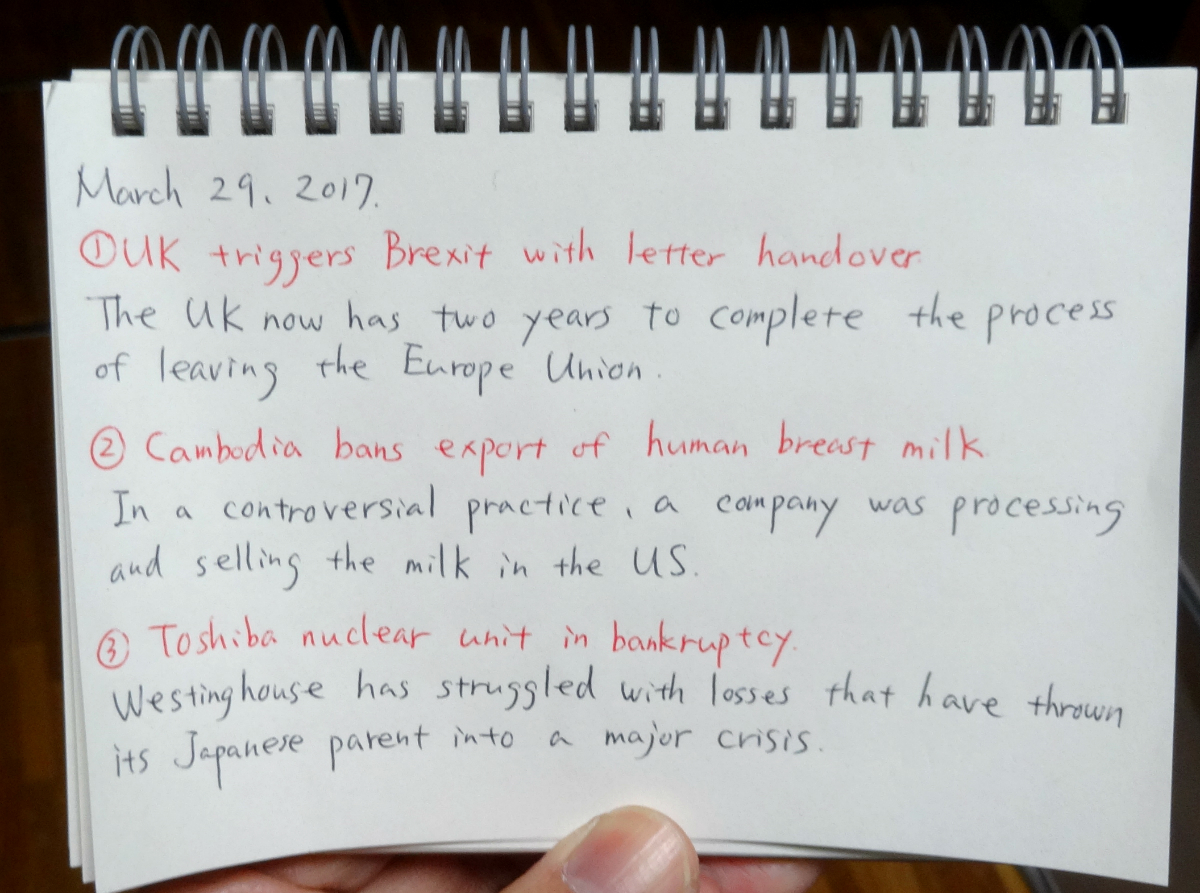 March 29. 2017.
①UK triggers Brexit with letter handover
The UK now has two years to complete the process
of leaving the Europe Union.
② Cambodia bans export of human breast milk
In a controversial practice, a company was processing
and selling the milk in the US.
③ Toshiba nuclear unit in bankruptcy.
Westinghouse has struggled with losses that have thrown
its Japanese parent into a major crisis.